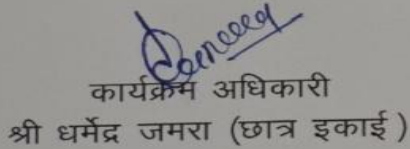 कार्यक्रम अधिकारी
श्री धर्मेद्र जमरा (छात्र इकाई )